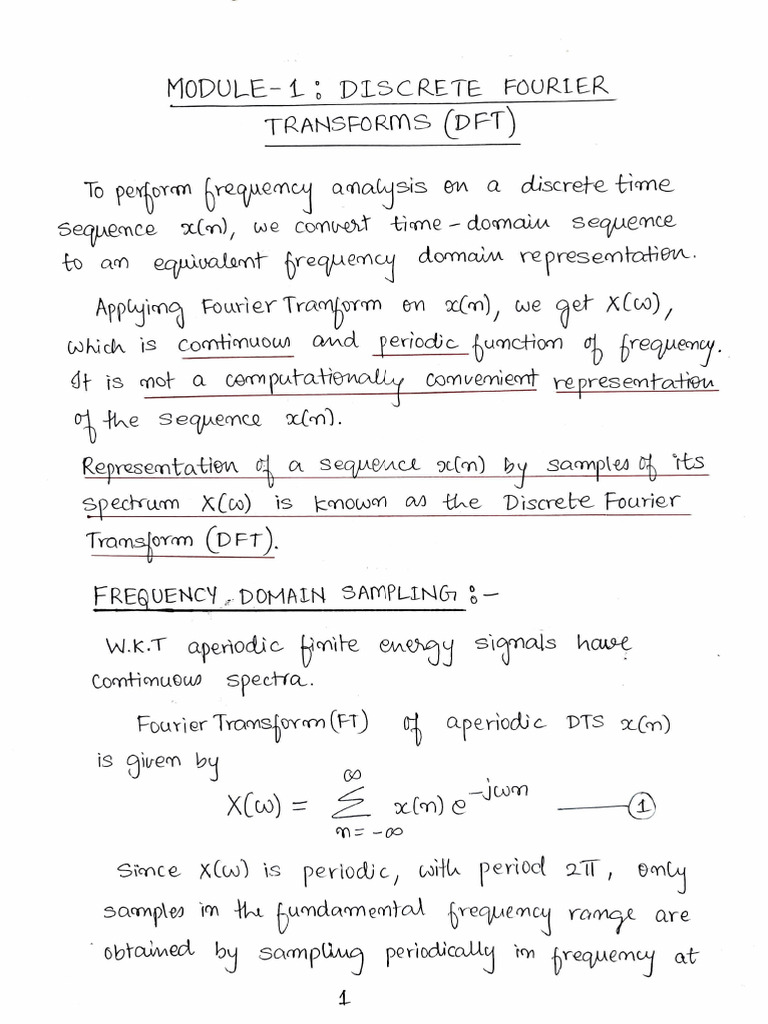 MODULE-1: DISCRETE FOURIER
TRANSFORMS (DFT)
To perform frequency analysis on a discrete time
sequence x(n), we convert time-domain sequence
to an equivalent frequency domain representation.
Applying Fourier Tranform on x(n), we get X(ω),
which is continuous and periodic function of frequency.
It is not a computationally convenient representation
of the sequence x(n).
Representation of a sequence x(n) by samples of its
spectrum X(ω) is known as the Discrete Fourier
Transform (DFT).
FREQUENCY DOMAIN SAMPLING :-
W.K.T aperiodic finite energy signals have
continuous spectra.
Fourier Transform (FT) of aperiodic DTS x(n)
is given by
X(ω) = ∞ Σ n=-∞ x(n) e^-jωn —— ①
Since X(ω) is periodic, with period 2π, only
samples in the fundamental frequency range are
obtained by sampling periodically in frequency at
1